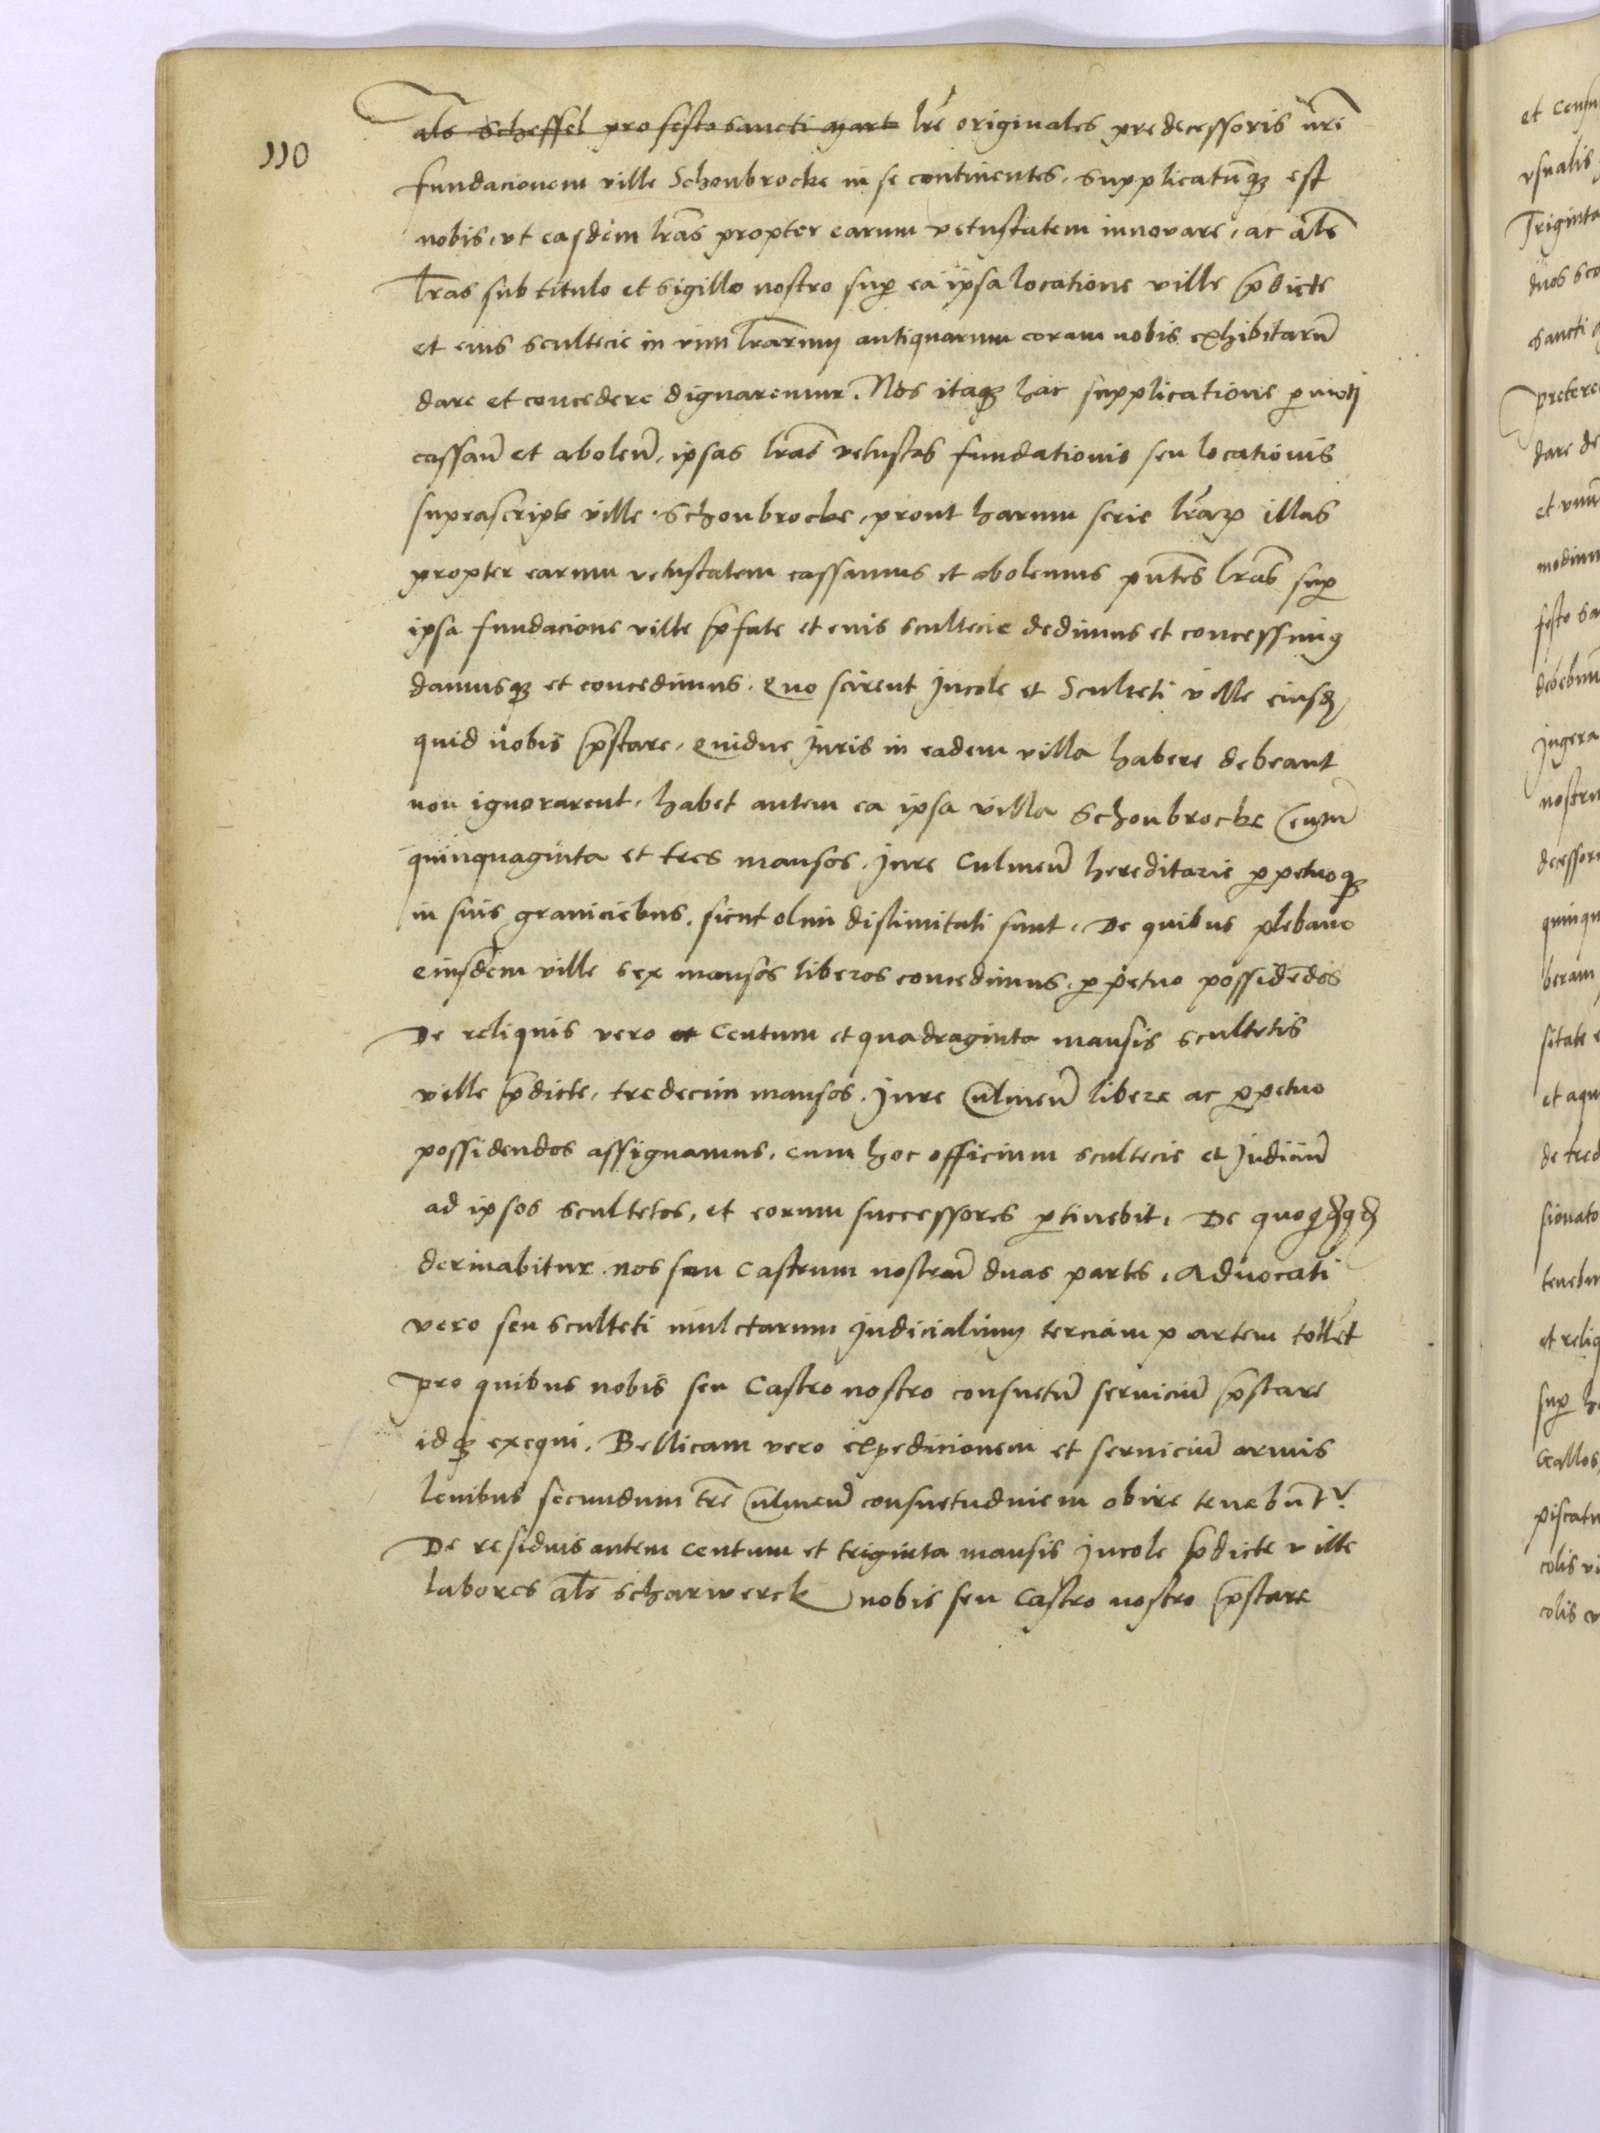 110
als scheffel pro festo sancti mart lre originales predecessoris nri
fundacionem ville Schonbrocke in se continentes, supplicatumq est
nobis, vt easdem lras propter earum vetustatem innovare, ac als
lras sub titulo et sigillo nostro sup ea ipsa locatione ville pdicte
et eius scultecie in vim lrarum antiquarum coram nobis exhibitarū
dare et concedere dignaremur. Nos itaq hac supplicatione pmoti
cassan̄ et abolen̄, ipsas lras vetustas fundationis seu locationis
suprascripte ville Schonbrocke, prout harum serie lrarp illas
propter earum vetustatem cassamus et abolemus pntes lras sup
ipsa fundacione ville pfate et eius scultecie dedimus et concessimus
damusq et concedimus. Quo scirent Incole et Sculteti ville eiusd
quid nobis pstare, quidue Iuris in eadem villa habere debeant
non ignorarent. habet autem ea ipsa villa Schonbrocke Centum
quinquaginta et tres mansos. Iure Culmen̄ hereditarie ppetuoq
in suis graniciebus. sicut olim dislimitati sunt. De quibus plebano
eiusdem ville sex mansos liberos concedimus. ppetuo possidēdos
De reliquis vero et Centum et quadraginta mansis scultetis
ville pdicte, tredecim mansos. Iure Culmen̄ libere ac ppetuo
possidendos assignamus, cum hoc officium scultecie et Iudiciū
ad ipsos scultetos, et eorum successores ptinebit. De quo
derivabitur nos seu Castrum nostrum duas partes, Advocati
vero seu sculteti mulctarum Iudicialium terciam partem tollet
Pro quibus nobis seu Castro nostro consuetū serviciū pstare
idq exequi. Bellicam vero expedicionem et serviciū armis
levibus secundum tre Culmen̄ consuetudinem obire tenebūtr
De residuis autem Centum et triginta mansis Incole pdicte ville
labores als scharwerck nobis seu Castro nostro pstare
et
vsualis
Triginta
duos
sancti
Pretere
dare de
et
modium
festo sa
debebun
Iugera
nostru
decessori
quinqu
beram
sitate
et aqu
de tred
sionato
tenebu
et reliq
sup
piscatu
colis vi
colis v